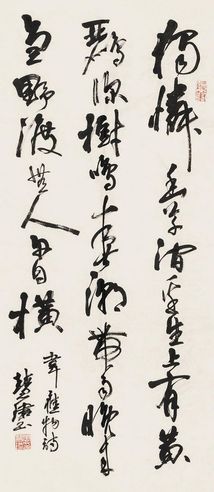 獨憐幽草澗邊生上有黃
鸝深樹鳴春潮帶雨晚來
急野渡無人舟自橫
韋應物詩